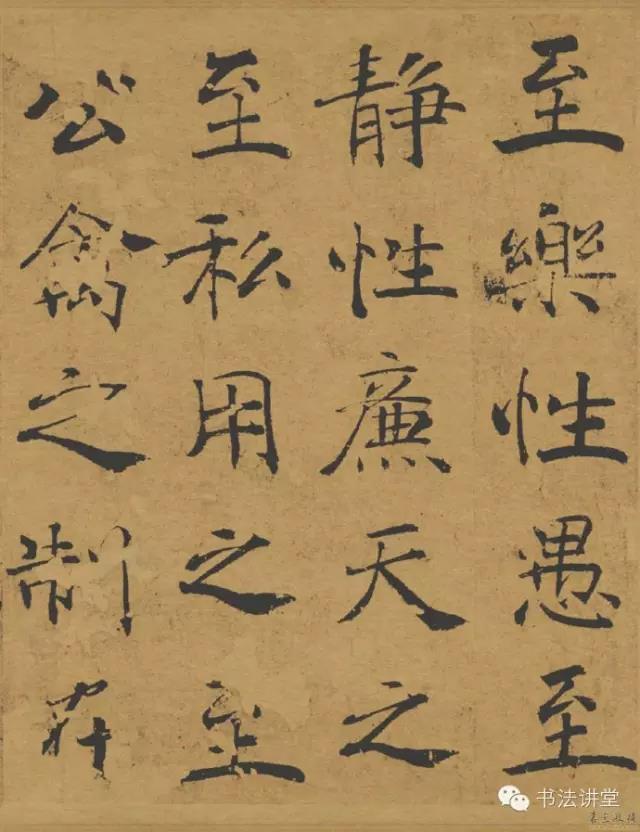 至樂性愚至
静性廉天之
至私用之至
公禽之制在
书法讲堂